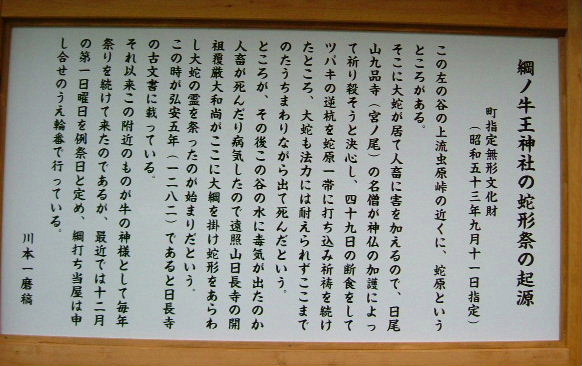 綱ノ牛王神社の蛇形祭の起源
町指定無形文化財
（昭和五十三年九月十一日指定）
この左の谷の上流虫原峠の近くに、蛇原という
ところがある。
そこに大蛇が居て人畜に害を加えるので、日尾
山九品寺（宮ノ尾）の名僧が神仏の加護によっ
て祈り殺そうと決心し、四十九日の断食をして
ツバキの逆杭を蛇原一帯に打ち込み祈祷を続け
たところ、大蛇も法力には耐えられずここまで
のたうちまわりながら出て死んだという。
ところが、その後この谷の水に毒気が出たのか
人畜が死んだり病気したので遠照山日長寺の開
祖覆巌大和尚がここに大綱を掛け蛇形をあらわ
し大蛇の霊を祭ったのが始まりだという。
この時が弘安五年（一二八二）であると日長寺
の古文書に載っている。
それ以来この附近のものが牛の神様として毎年
祭りを続けて来たのであるが、最近では十二月
の第一日曜日を例祭日と定め、綱打ち当屋は申
し合せのうえ輪番で行っている。
川本一磨稿